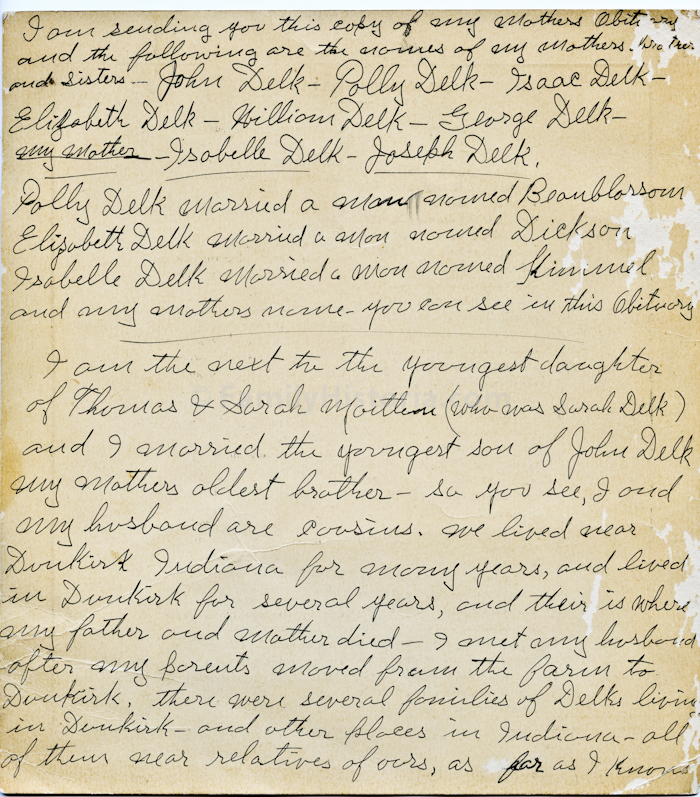 I am sending you this copy of my Mothers Obituary
and the following are the names of my mothers. Brother
and Sisters - John Delk - Polly Delk - Isaac Delk -
Elizabeth Delk - William Delk - George Delk -
my mother - Isabelle Delk - Joseph Delk.
Polly Delk married a man named Beanblossom
Elizabeth Delk married a man named Dickson
Isabelle Delk married a man named Kimmel
and my mothers name - you can see in this Obituary
I am the next to the youngest daughter
of Thomas & Sarah Maitlen (who was Sarah Delk)
and I married. the youngest son of John Delk
my mothers oldest brother - so you see, I and
my husband are cousins. we lived near
Dunkirk Indiana for many years, and lived
in Dunkirk for several years, and their is where
my father and mother died - I met my husband
after my parents moved from the farm to
Dunkirk. there were several families of Delks livin
in Dunkirk - and other places in Indiana - all
of them near relatives of ours, as far as I know